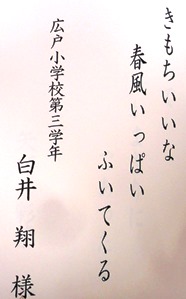 きもちいいな
春風いっぱい
ふいてくる
広戸小学校第三学年
白井 翔 様